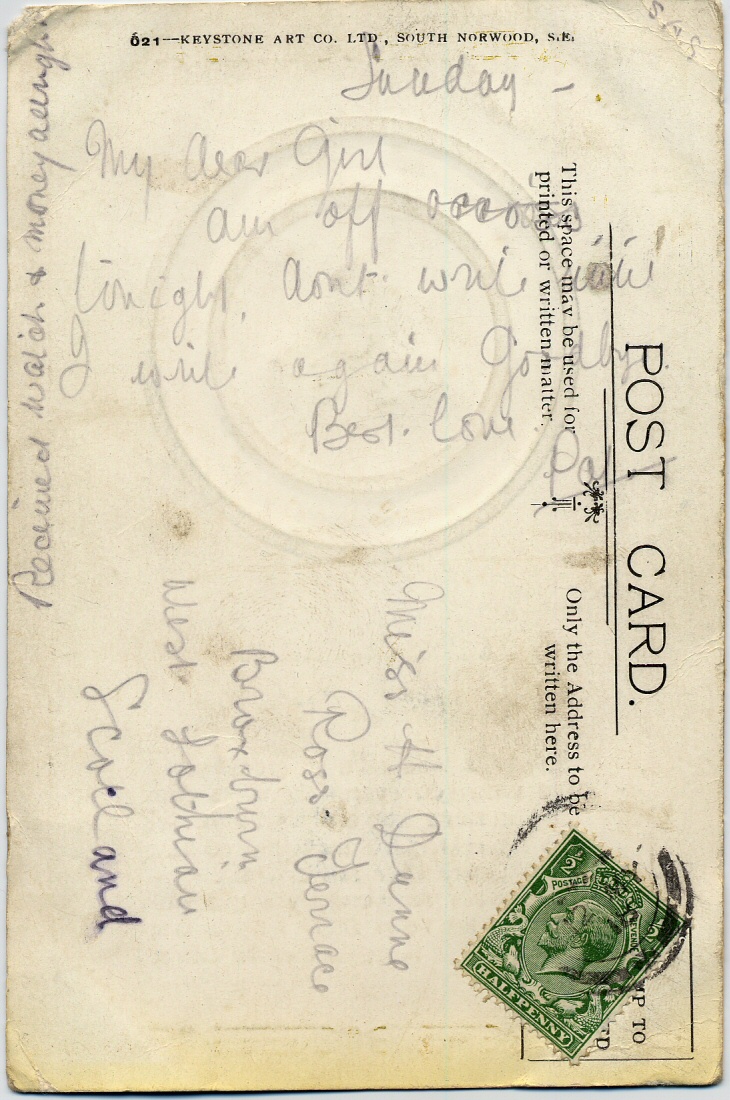 621--KEYSTONE ART CO. LTD., SOUTH NORWOOD, S.E.
Sunday -
My dear Girl
am off
tonight, dont write until
I write again Goodbye.
Best. love.
Pat
Received watch & money allright.
POST CARD.
This space may be used for
printed or written matter.
Only the Address to be
written here.
Miss H Dunne
Ross. Terrace
Broxburn
West Lothian
Scotland
POSTAGE
REVENUE
HALFPENNY